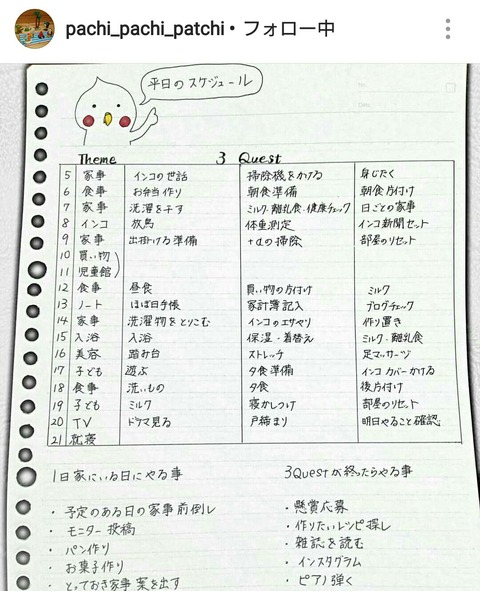 pachi_pachi_patchi • フォロー中
平日のスケジュール
Theme 3 Quest
5 家事 インコの世話 掃除機をかける 身じたく
6 食事 お弁当作り 朝食準備 朝食片付け
7 家事 洗濯を干す ミルク・離乳食・健康チェック 日ごとの家事
8 インコ 放鳥 体重測定 インコ新聞セット
9 家事 出掛ける準備 +αの掃除 部屋のリセット
10 買い物
11 児童館
12 食事 昼食 買い物の片付け ミルク
13 ノート ほぼ日手帳 家計簿記入 ブログチェック
14 家事 洗濯物をとりこむ インコのエサやり 作り置き
15 入浴 入浴 保湿・着替え ミルク・離乳食
16 美容 踏み台 ストレッチ 足マッサージ
17 子ども 遊ぶ 夕食準備 インコ カバーかける
18 食事 洗いもの 夕食 後片付け
19 子ども ミルク 寝かしつけ 部屋のリセット
20 TV ドラマ見る 戸締まり 明日やること確認
21 就寝
1日家にいる日にやる事 3Questが終ったらやる事
・予定のある日の家事前倒し ・懸賞応募
・モニター投稿 ・作りたいレシピ探し
・パン作り ・雑誌を読む
・お菓子作り ・インスタグラム
・とっておき家事案を出す ・ピアノ弾く